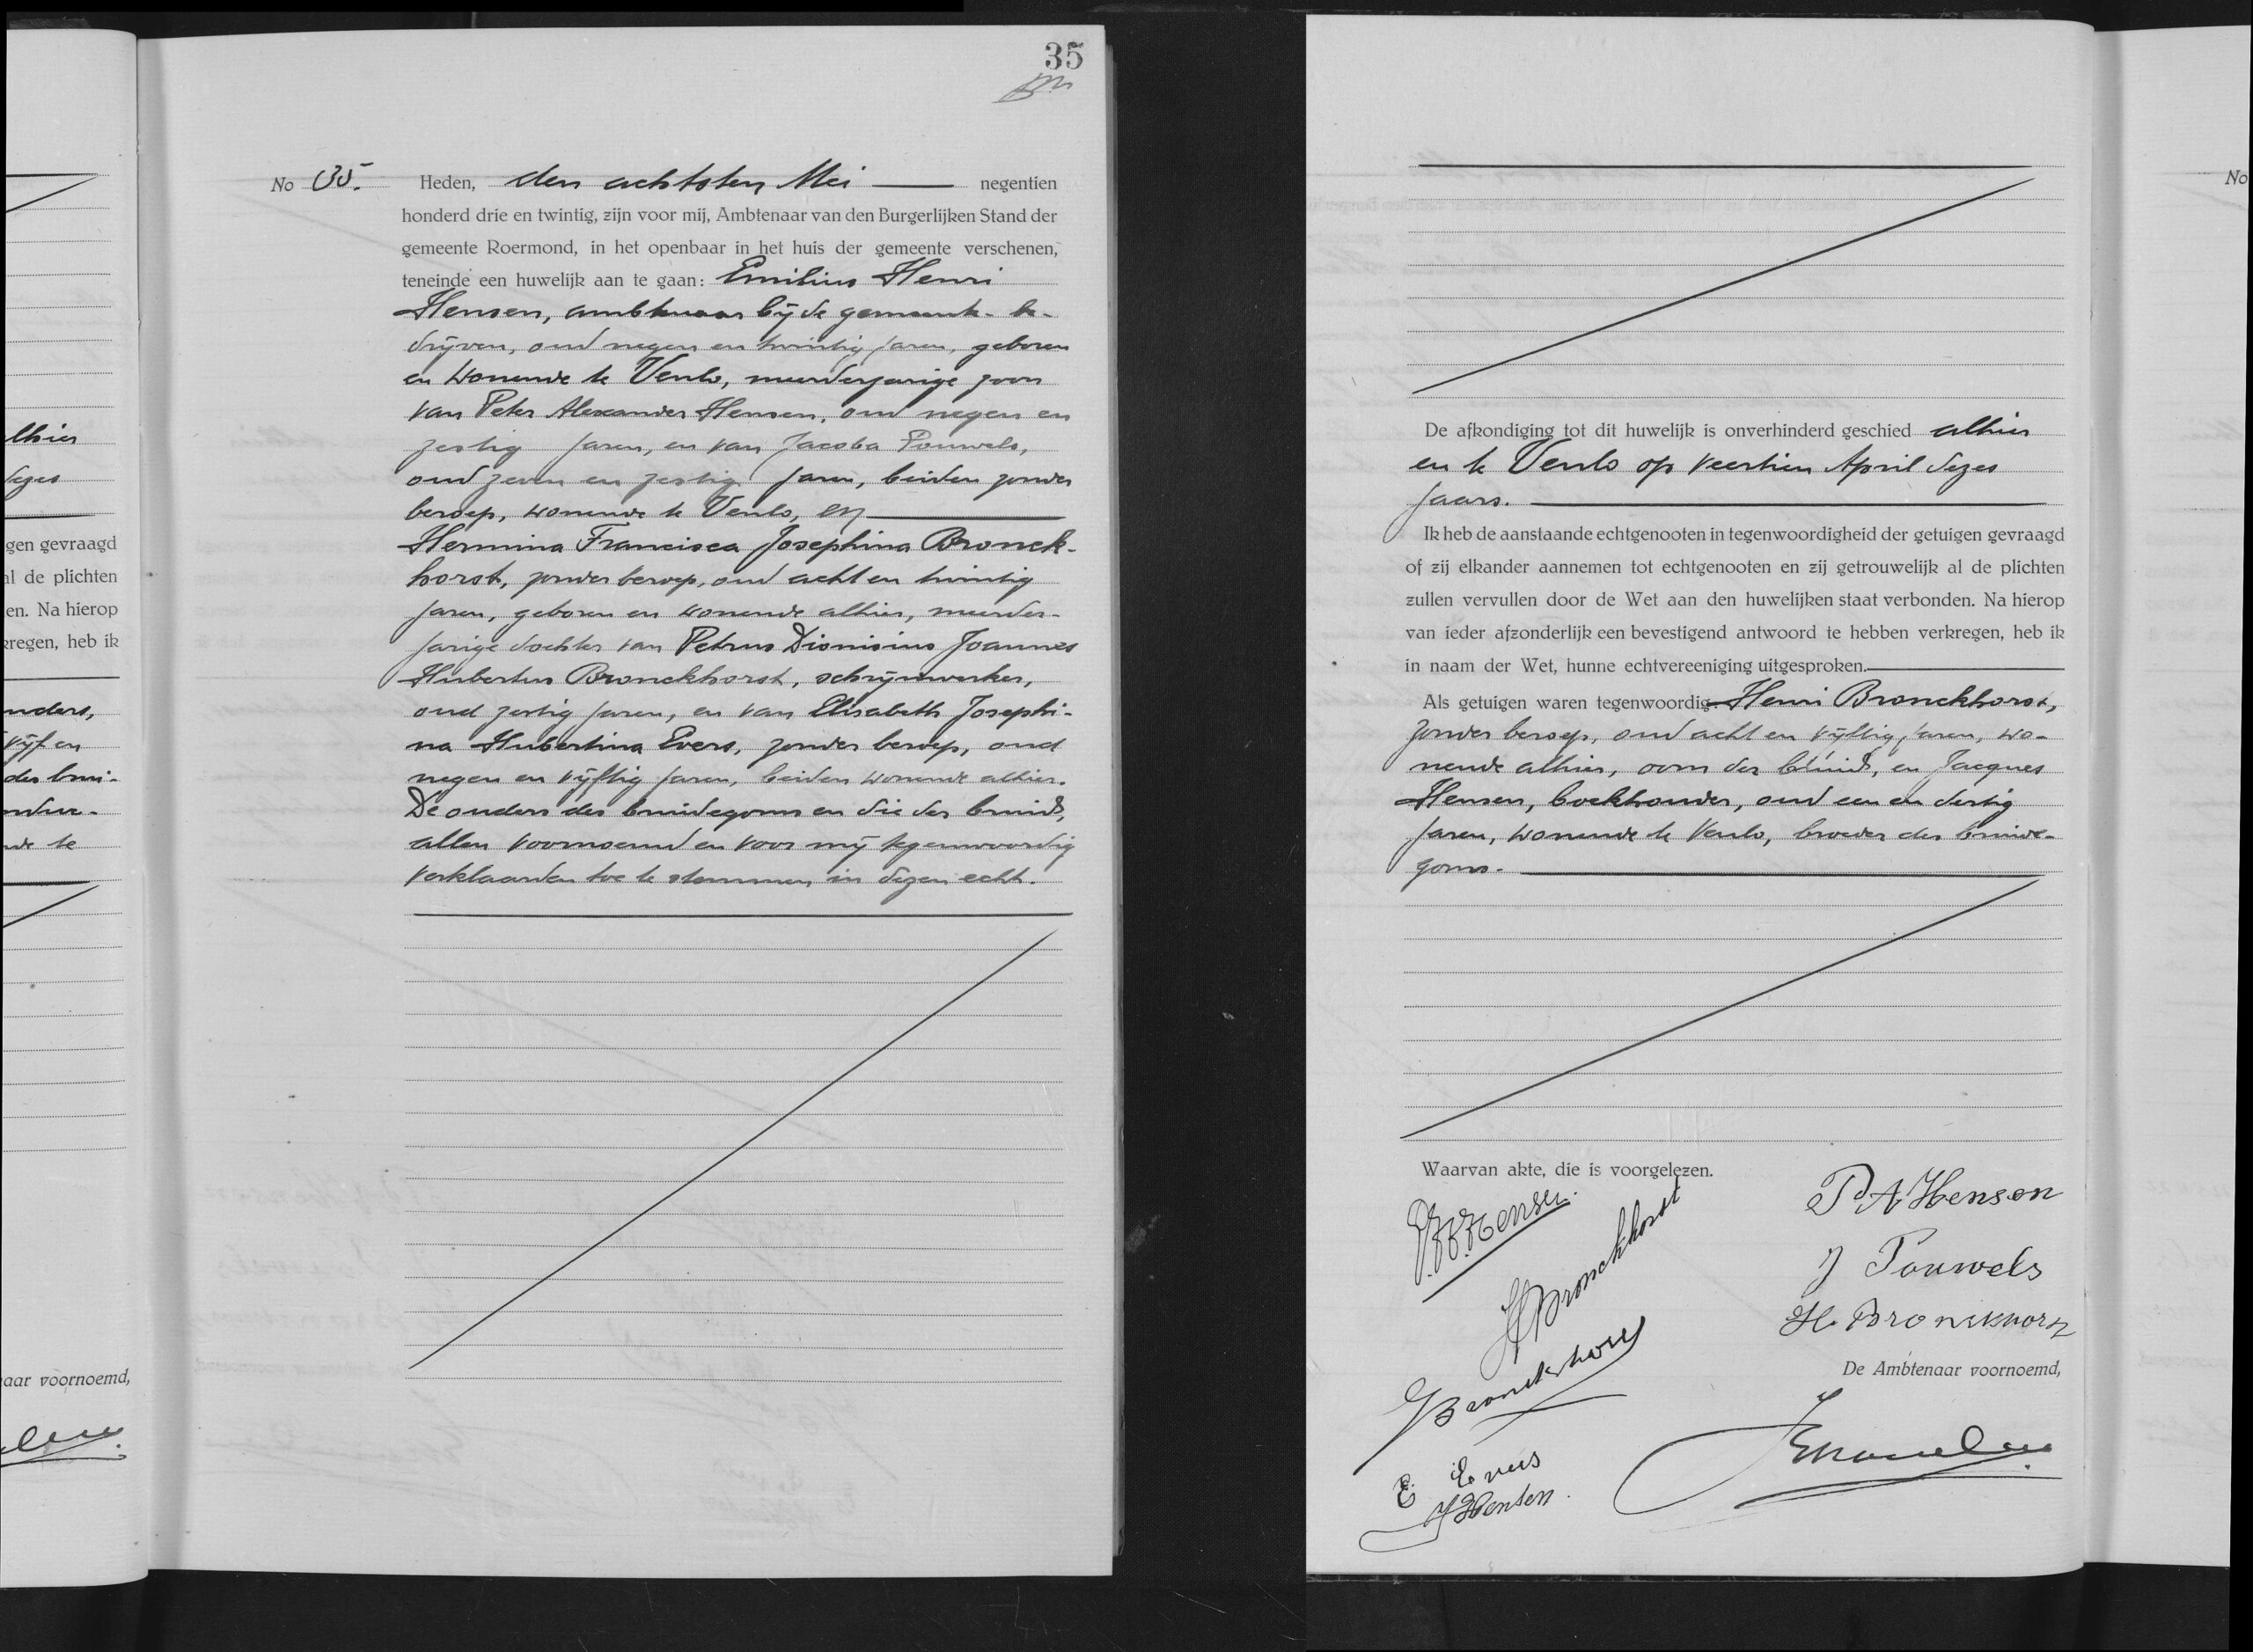 35
No 35. Heden, den achtsten Mei negentien
honderd drie en twintig, zijn voor mij, Ambtenaar van den Burgerlijken Stand der
gemeente Roermond, in het openbaar in het huis der gemeente verschenen,
teneinde een huwelijk aan te gaan: Emilius Henri
Hensen, ambtenaar bij de gemeente-be-
drijven, oud negen en twintig jaren, geboren
en wonende te Venlo, meerderjarige zoon
van Peter Alexander Hensen, oud negen en
zestig jaren, en van Jacoba Pouwels,
oud zeven en zestig jaren, beiden zonder
beroep, wonende te Venlo, en
Hermina Francisca Josephina Bronck-
horst, zonder beroep, oud acht en twintig
jaren, geboren en wonende alhier, meerder-
jarige dochter van Petrus Dionisius Joannes
Hubertus Bronckhorst, schrijnwerker,
oud zestig jaren, en van Elisabeth Josephi-
na Hubertina Evers, zonder beroep, oud
negen en vijftig jaren, beiden wonende alhier.
De ouders des bruidegoms en die der bruid,
allen voornoemd en voor mij tegenwoordig
verklaarden toe te stemmen in dezen echt.
lhier
dezes
gen gevraagd
al de plichten
en. Na hierop
kregen, heb ik
nders,
vijf en
der brui-
nde te
aar voornoemd,
De afkondiging tot dit huwelijk is onverhinderd geschied alhier
en te Venlo op veertien April dezes
jaars.
Ik heb de aanstaande echtgenooten in tegenwoordigheid der getuigen gevraagd
of zij elkander aannemen tot echtgenooten en zij getrouwelijk al de plichten
zullen vervullen door de Wet aan den huwelijken staat verbonden. Na hierop
van ieder afzonderlijk een bevestigend antwoord te hebben verkregen, heb ik
in naam der Wet, hunne echtvereeniging uitgesproken.
Als getuigen waren tegenwoordig: Henri Bronckhorst,
zonder beroep, oud acht en vijftig jaren, wo-
nende alhier, oom der bruid, en Jacques
Hensen, boekhouder, oud een en dertig
jaren, wonende te Venlo, broeder des bruide-
goms.
Waarvan akte, die is voorgelezen.
Hensen.
P A Hensen
HBronckhorst
J Pouwels
H. Bronckhorst
Bronckhorst
De Ambtenaar voornoemd,
E Evers
J Hensen.
No